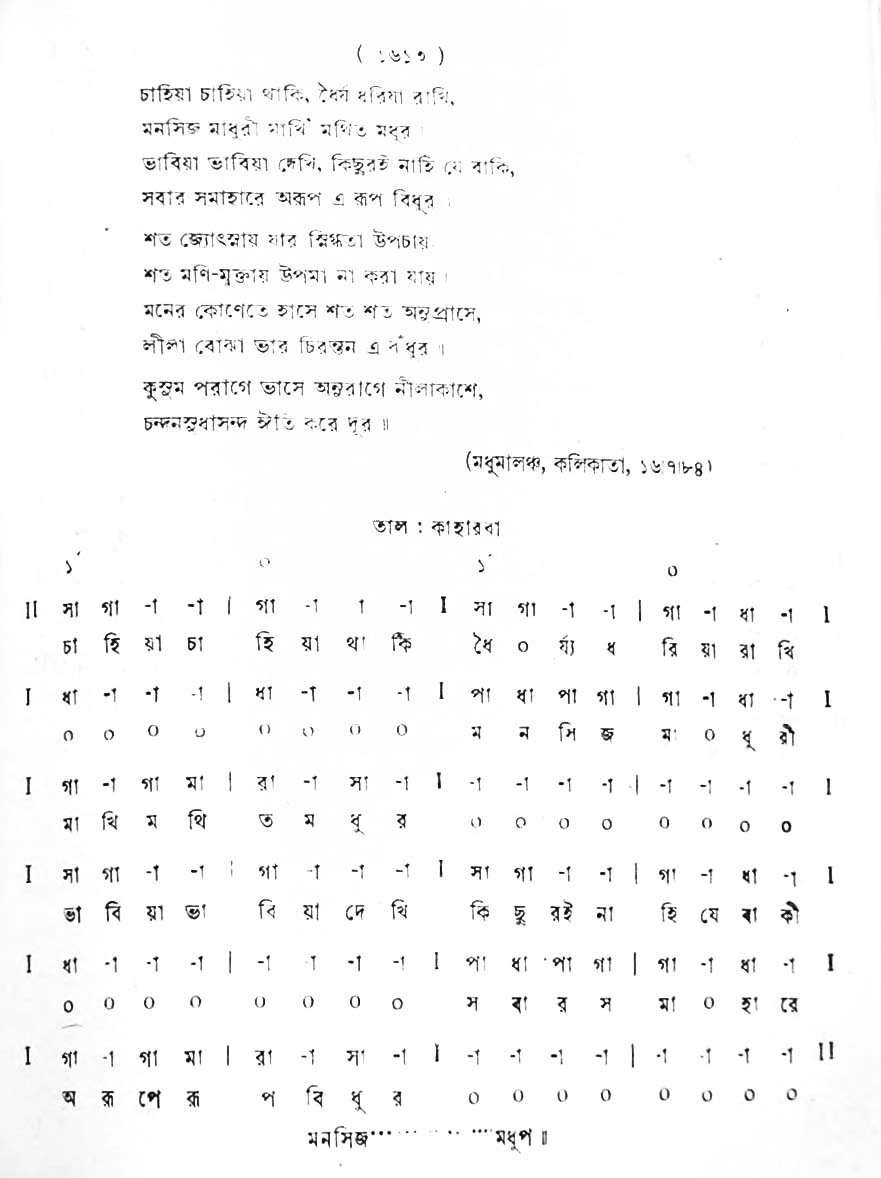 ( ১৬১৩ )
চাহিয়া চাহিয়া থাকি, ধৈর্য ধরিয়া রাখি,
মনসিজ মাধুরী মাখি মথিত মধুর ।
ভাবিয়া ভাবিয়া দেখি, কিছুরই নাহি যে বাকি,
সবার সমাহারে অরূপ এ রূপ বিধুর ।
শত জ্যোৎস্নায় যার স্নিগ্ধতা উপচায়
শত মণি-মুক্তায় উপমা না করা যায় ।
মনের কোণেতে হাসে শত শত অনুপ্রাসে,
লীলা বোঝা ভার চিরন্তন এ বঁধুর ॥
কুসুম পরাগে ভাসে অনুরাগে নীলাকাশে,
চন্দনসুধাসন্দ ঈতি করে দূর ॥
(মধুমালঞ্চ, কলিকাতা, ১৬।৭।৮৪)
তাল : কাহারবা
১´ ০ ১´ ০
II সা গা -া -া | গা -া া -া I সা গা -া -া | গা -া ধা -া I
চা হি য়া চা হি য়া থা কি ধৈ ০ র্য্য ধ রি য়া রা খি
I ধা -া -া -া | ধা -া -া -া I পা ধা পা গা | গা -া ধা -া I
০ ০ ০ ০ ০ ০ ০ ০ ম ন সি জ মা ০ ধু রী
I গা -া গা মা | রা -া সা -া I -া -া -া -া | -া -া -া -া I
মা খি ম থি ত ম ধু র ০ ০ ০ ০ ০ ০ ০ ০
I সা গা -া -া | গা -া -া -া I সা গা -া -া | গা -া ধা -া I
ভা বি য়া ভা বি য়া দে খি কি ছু রই না হি যে বা কী
I ধা -া -া -া | -া -া -া -া I পা ধা পা গা | গা -া ধা -া I
০ ০ ০ ০ ০ ০ ০ ০ স বা র স মা ০ হা রে
I গা -া গা মা | রা -া সা -া I -া -া -া -া | -া -া -া -া II
অ রূ পে রূ প বি ধু র ০ ০ ০ ০ ০ ০ ০ ০
মনসিজ··· ··· ·· ···মধুপ ॥